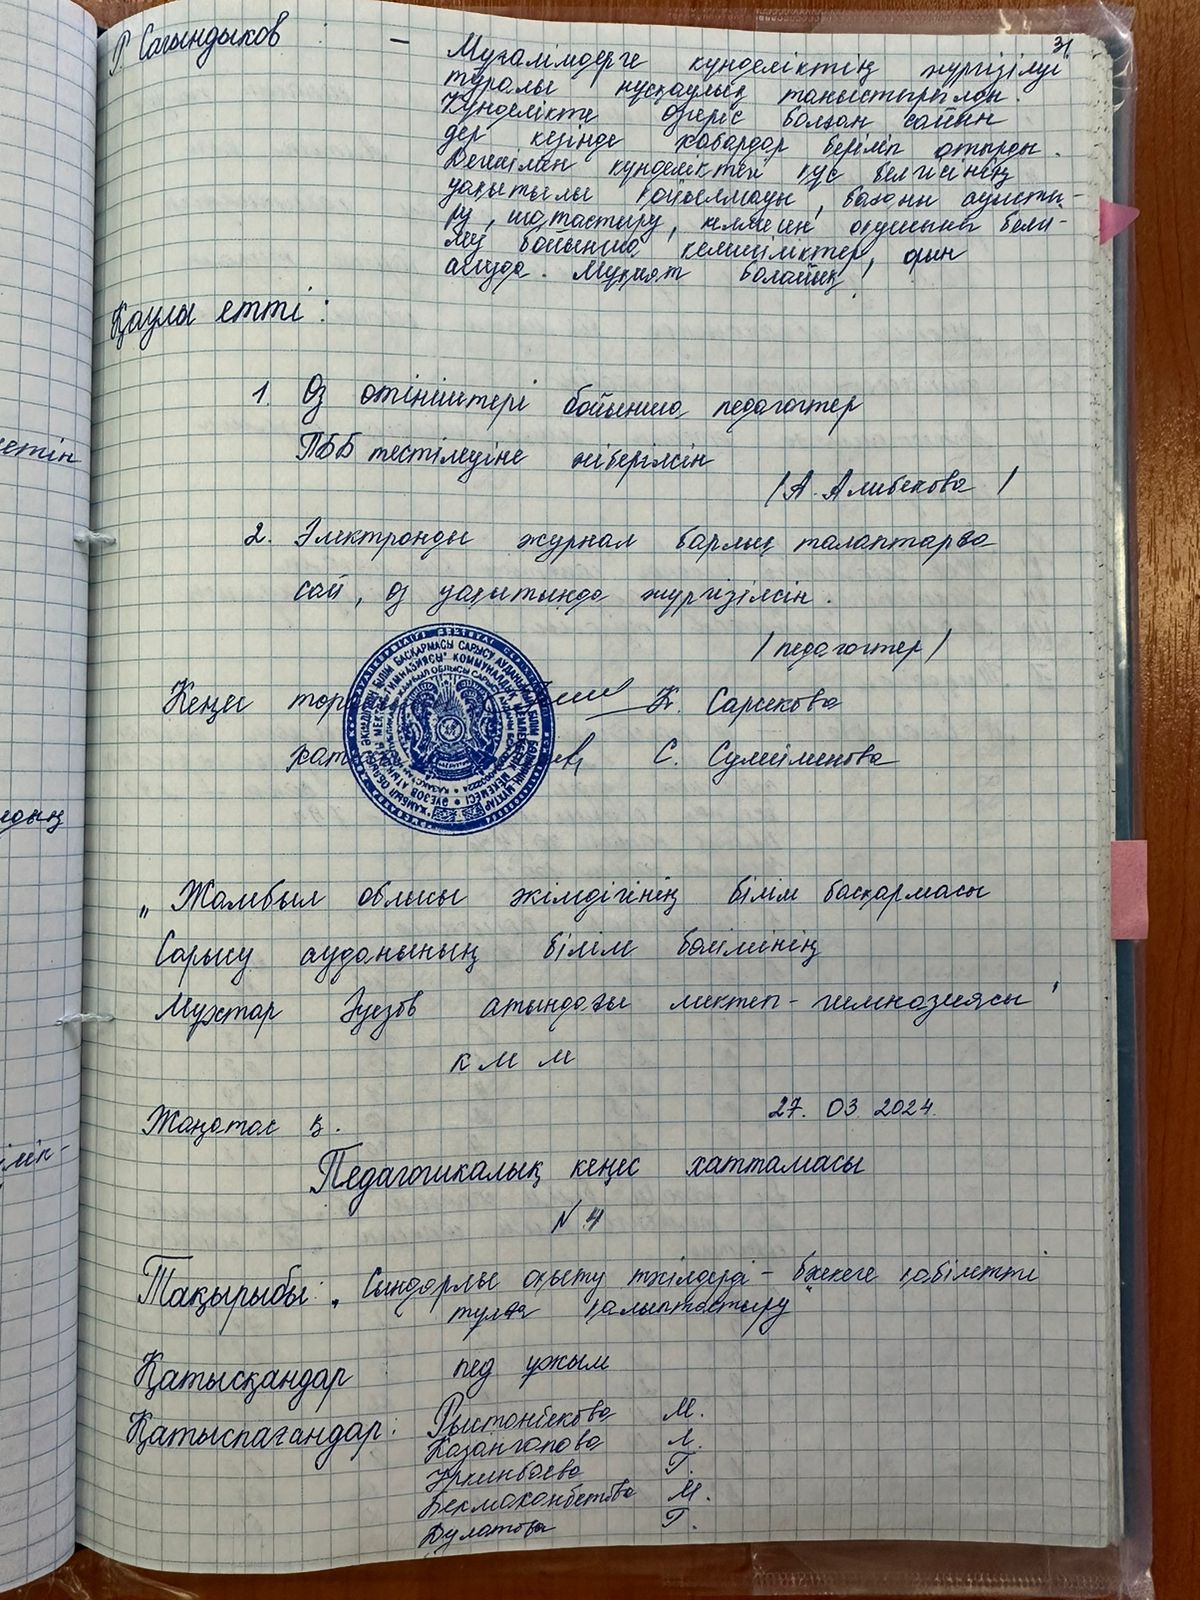 31
Р. Сағындыков : – Мұғалімдерге күнделіктің жүргізілуі
туралы нұсқаулық таныстырылған.
Күнделікте өзгеріс болған сайын
дер кезінде хабардар беріліп отырды.
күнделіктей құс белгісінің
уақытылы қойылмауы, бағаны ауысты-
ру, шатастыру, келмеген оқушыны белгі-
леу бойынша кемшіліктер орын
алуда. Мұқият болайық!
Қаулы етті:
1. Өз өтініштері бойынша педагогтер
ПББ тестілеуіне жіберілсін
/А. Алибекова/
2. Электронды журнал барлық талаптарға
сай, өз уақытында жүргізілсін.
/педагогтер/
Кеңес төр К. Сарсекова
хат С. Сулейменова
„Жамбыл облысы әкімдігінің білім басқармасы
Сарысу ауданының білім бөлімінің
Мұхтар Әуезов атындағы мектеп-гимназиясы"
КММ
Жаңатас қ. 27. 03 2024.
Педагогикалық кеңес хаттамасы
№ 4
Тақырыбы: „Сындарлы оқыту тәсілдері – бәсекеге қабілетті
тұлға қалыптастыру"
Қатысқандар пед ұжым
Қатыспағандар: Рыстанбекова М.
Казангапова Л.
Уркинбаева Г.
Бекмаханбетова М.
Дулатова Г.